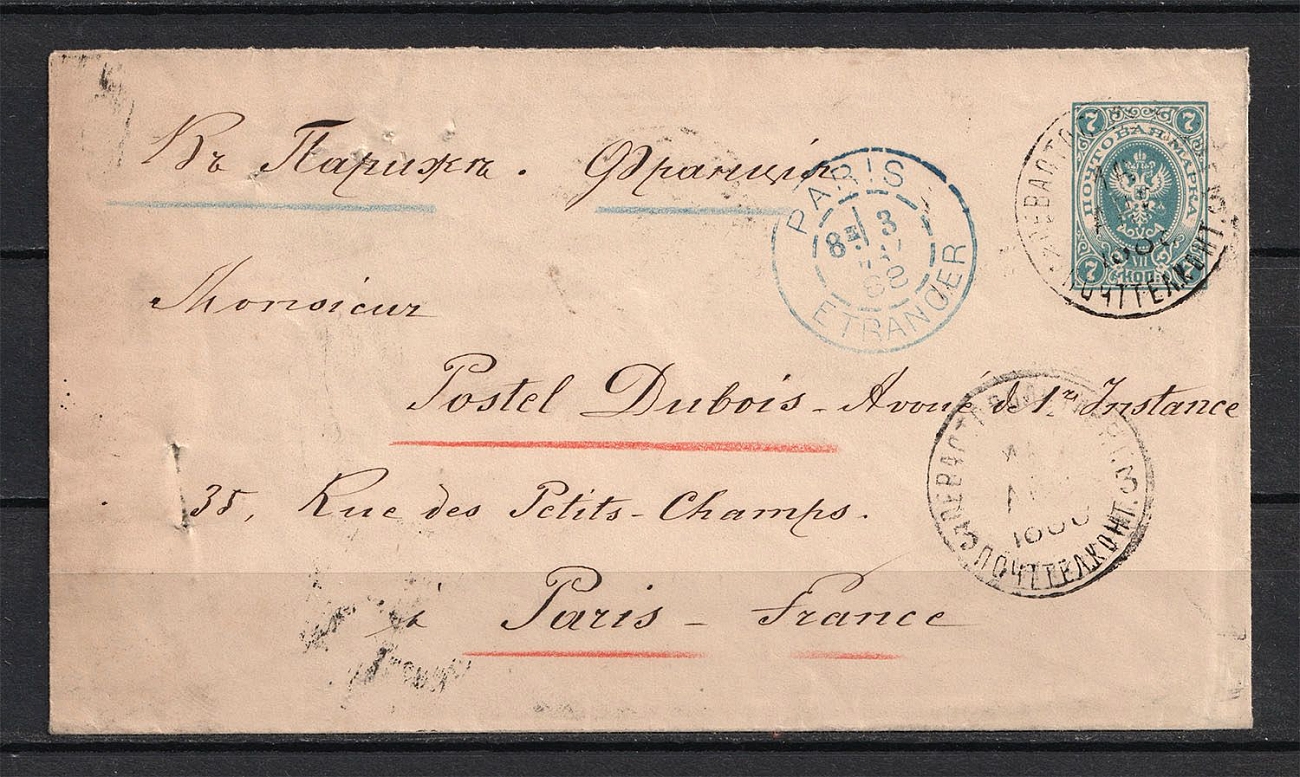 Въ Парижъ. Франція
Monsieur
Postel Dubois - Avoué de 1re Instance
35, Rue des Petits-Champs.
à Paris - France
PARIS
3
88
ETRANGER
7 7
ПОЧТОВАЯ МАРКА
7 КОП. 7
СЕВАСТОПОЛЬ
ПОЧТ ТЕЛ КОНТ.
СЕВАСТОПОЛЬ
ПОЧТ ТЕЛ КОНТ.